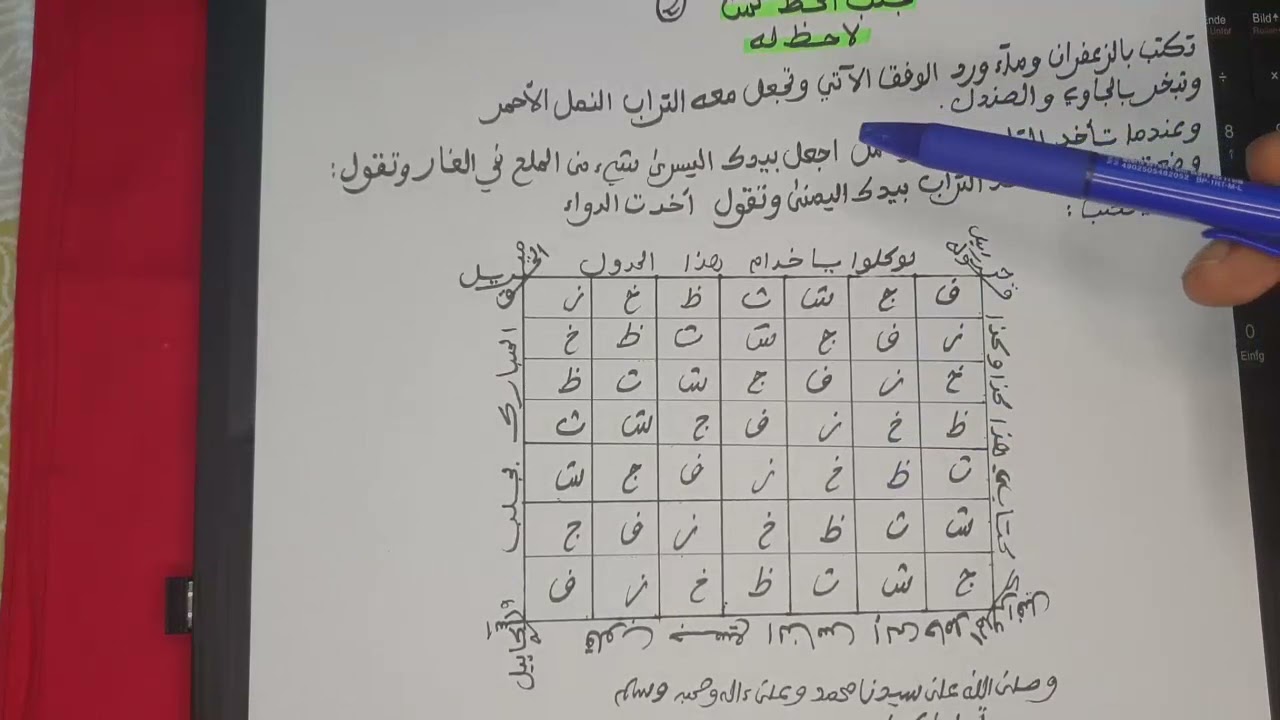 جلب الحظ لمن
لا حظ له
تكتب بالزعفران ومآء ورد الوفق الآتي وتجعل معه التراب النمل الأحمر
وتبخر بالجاوي والصندل.
وعندما تأخد
اجعل بيدك اليسرى شيء من الملح في الغار وتقول:
التراب بيدك اليمنى وتقول أخدت الدواء
توكلوا ياخدام هذا الجدول
ف ج ش ث ظ خ ز
ز ف ج ش ث ظ خ
خ ز ف ج ش ث ظ
ظ خ ز ف ج ش ث
ث ظ خ ز ف ج ش
ش ث ظ خ ز ف ج
ج ش ث ظ خ ز ف
المبارك بجلب
قلوب جميع الناس إلى حامل
كتابي هذا كذا وكذا
وصلى الله على سيدنا محمد وعلى ءاله وصحبه وسلم
Ende
Bild
÷
×
8
0
Einfg